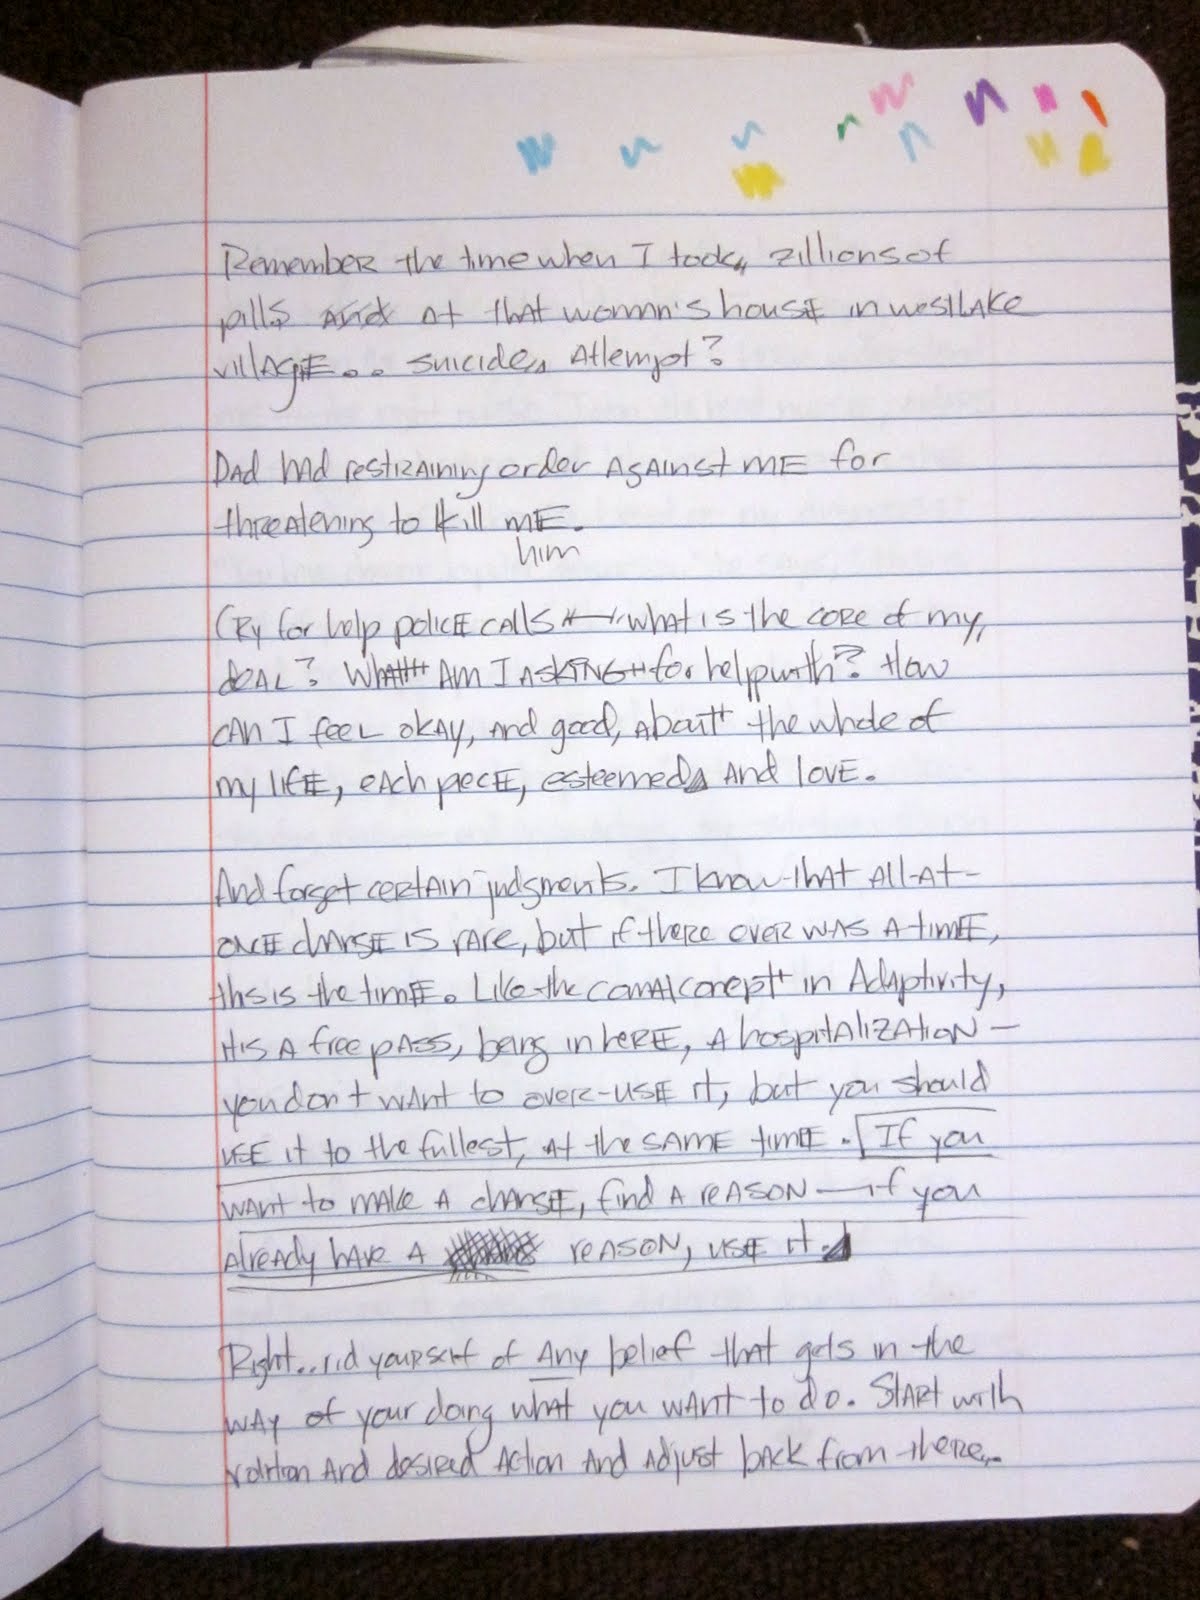 Remember the time when I took zillions of
pills and at that woman's house in westlake
village.. suicide attempt?
Dad had restraining order against me for
threatening to kill me.
him
Cry for help police calls what is the core of my
deal? What am I asking for help with? How
can I feel okay, and good, about the whole of
my life, each piece, esteemed and love.
And forget certain judgments. I know that all-at-
once change is rare, but if there over was a time,
this is the time. Like the comal conept in Adaptivity,
its a free pass, being in here, a hospitalization—
you don't want to over-use it, but you should
use it to the fullest, at the same time. If you
want to make a change, find a reason—if you
already have a reason, use it.
Right..rid yourself of any belief that gets in the
way of your doing what you want to do. Start with
volition and desired action and adjust back from there..